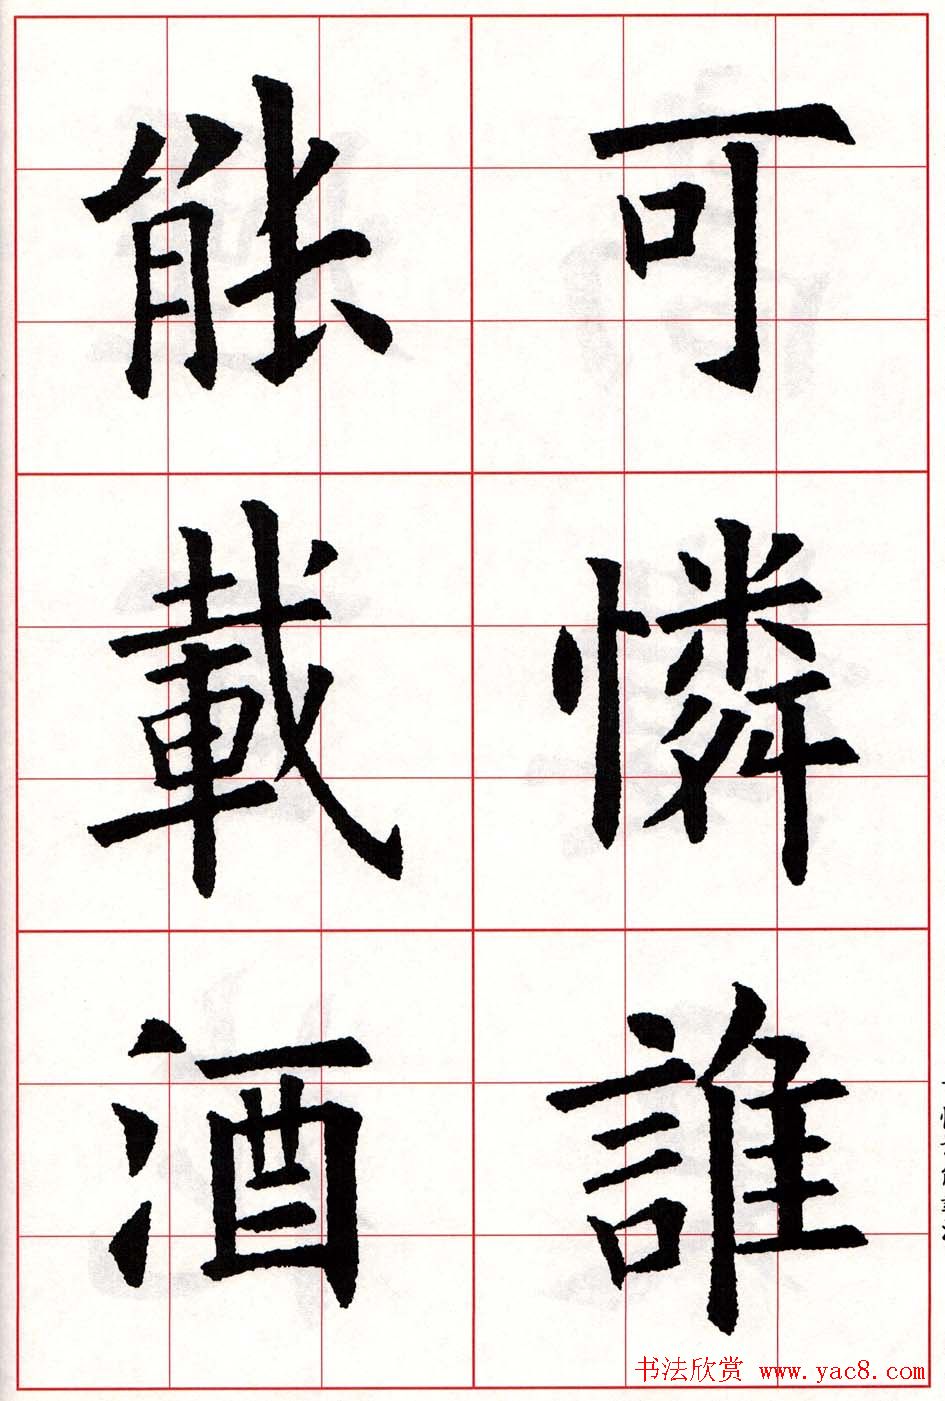 可憐誰
能載酒
书法欣赏 www.yac8.com